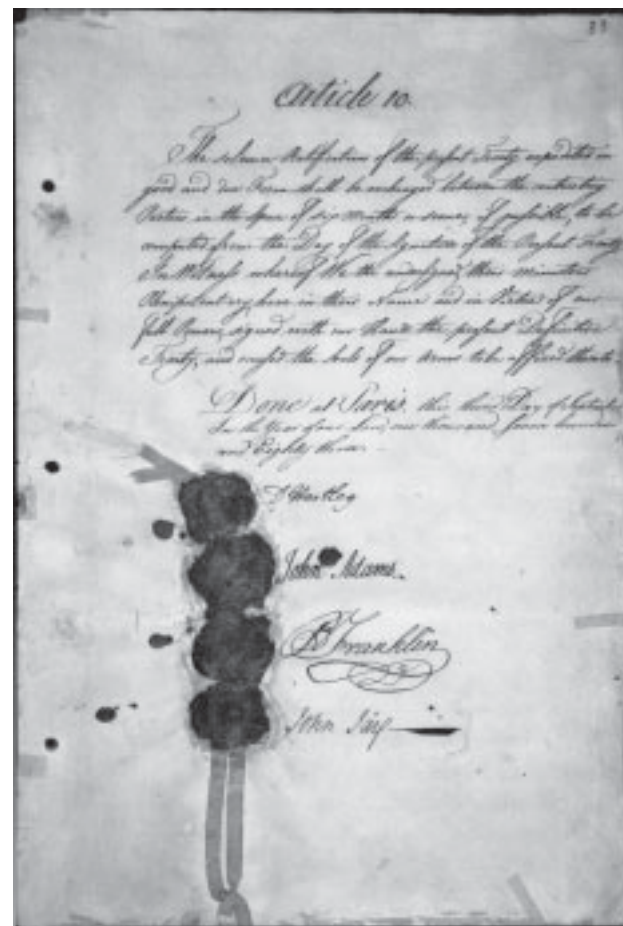 Article 10.
The solemn Ratifications of the present Treaty expedited in
good and due Form shall be exchanged between the contracting
Parties in the Space of Six Months or sooner, if possible, to be
computed from the Day of the Signature of the present Treaty.
In Witness whereof We the undersigned, their Ministers
Plenipotentiary have in their Name and in Virtue of our
Full Powers, signed with our Hands the present Definitive
Treaty, and caused the Seals of our Arms to be affixed thereto.
Done at Paris, this third Day of September
In the Year of our Lord, one thousand, seven hundred
and Eighty three.
D Hartley
John Adams.
B Franklin
John Jay